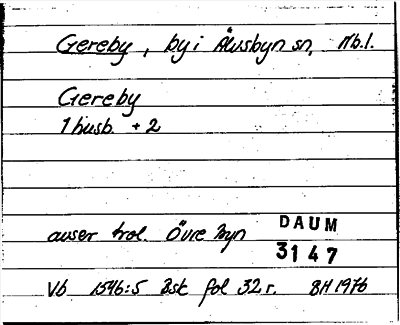 Gereby, by i Älvsbyn sn, Nb.l.
Gereby
1 husb. + 2
avser trol. Övre Byn
DAUM
3147
Vb 1546:5 Bsk fol 32 r. BH 1976